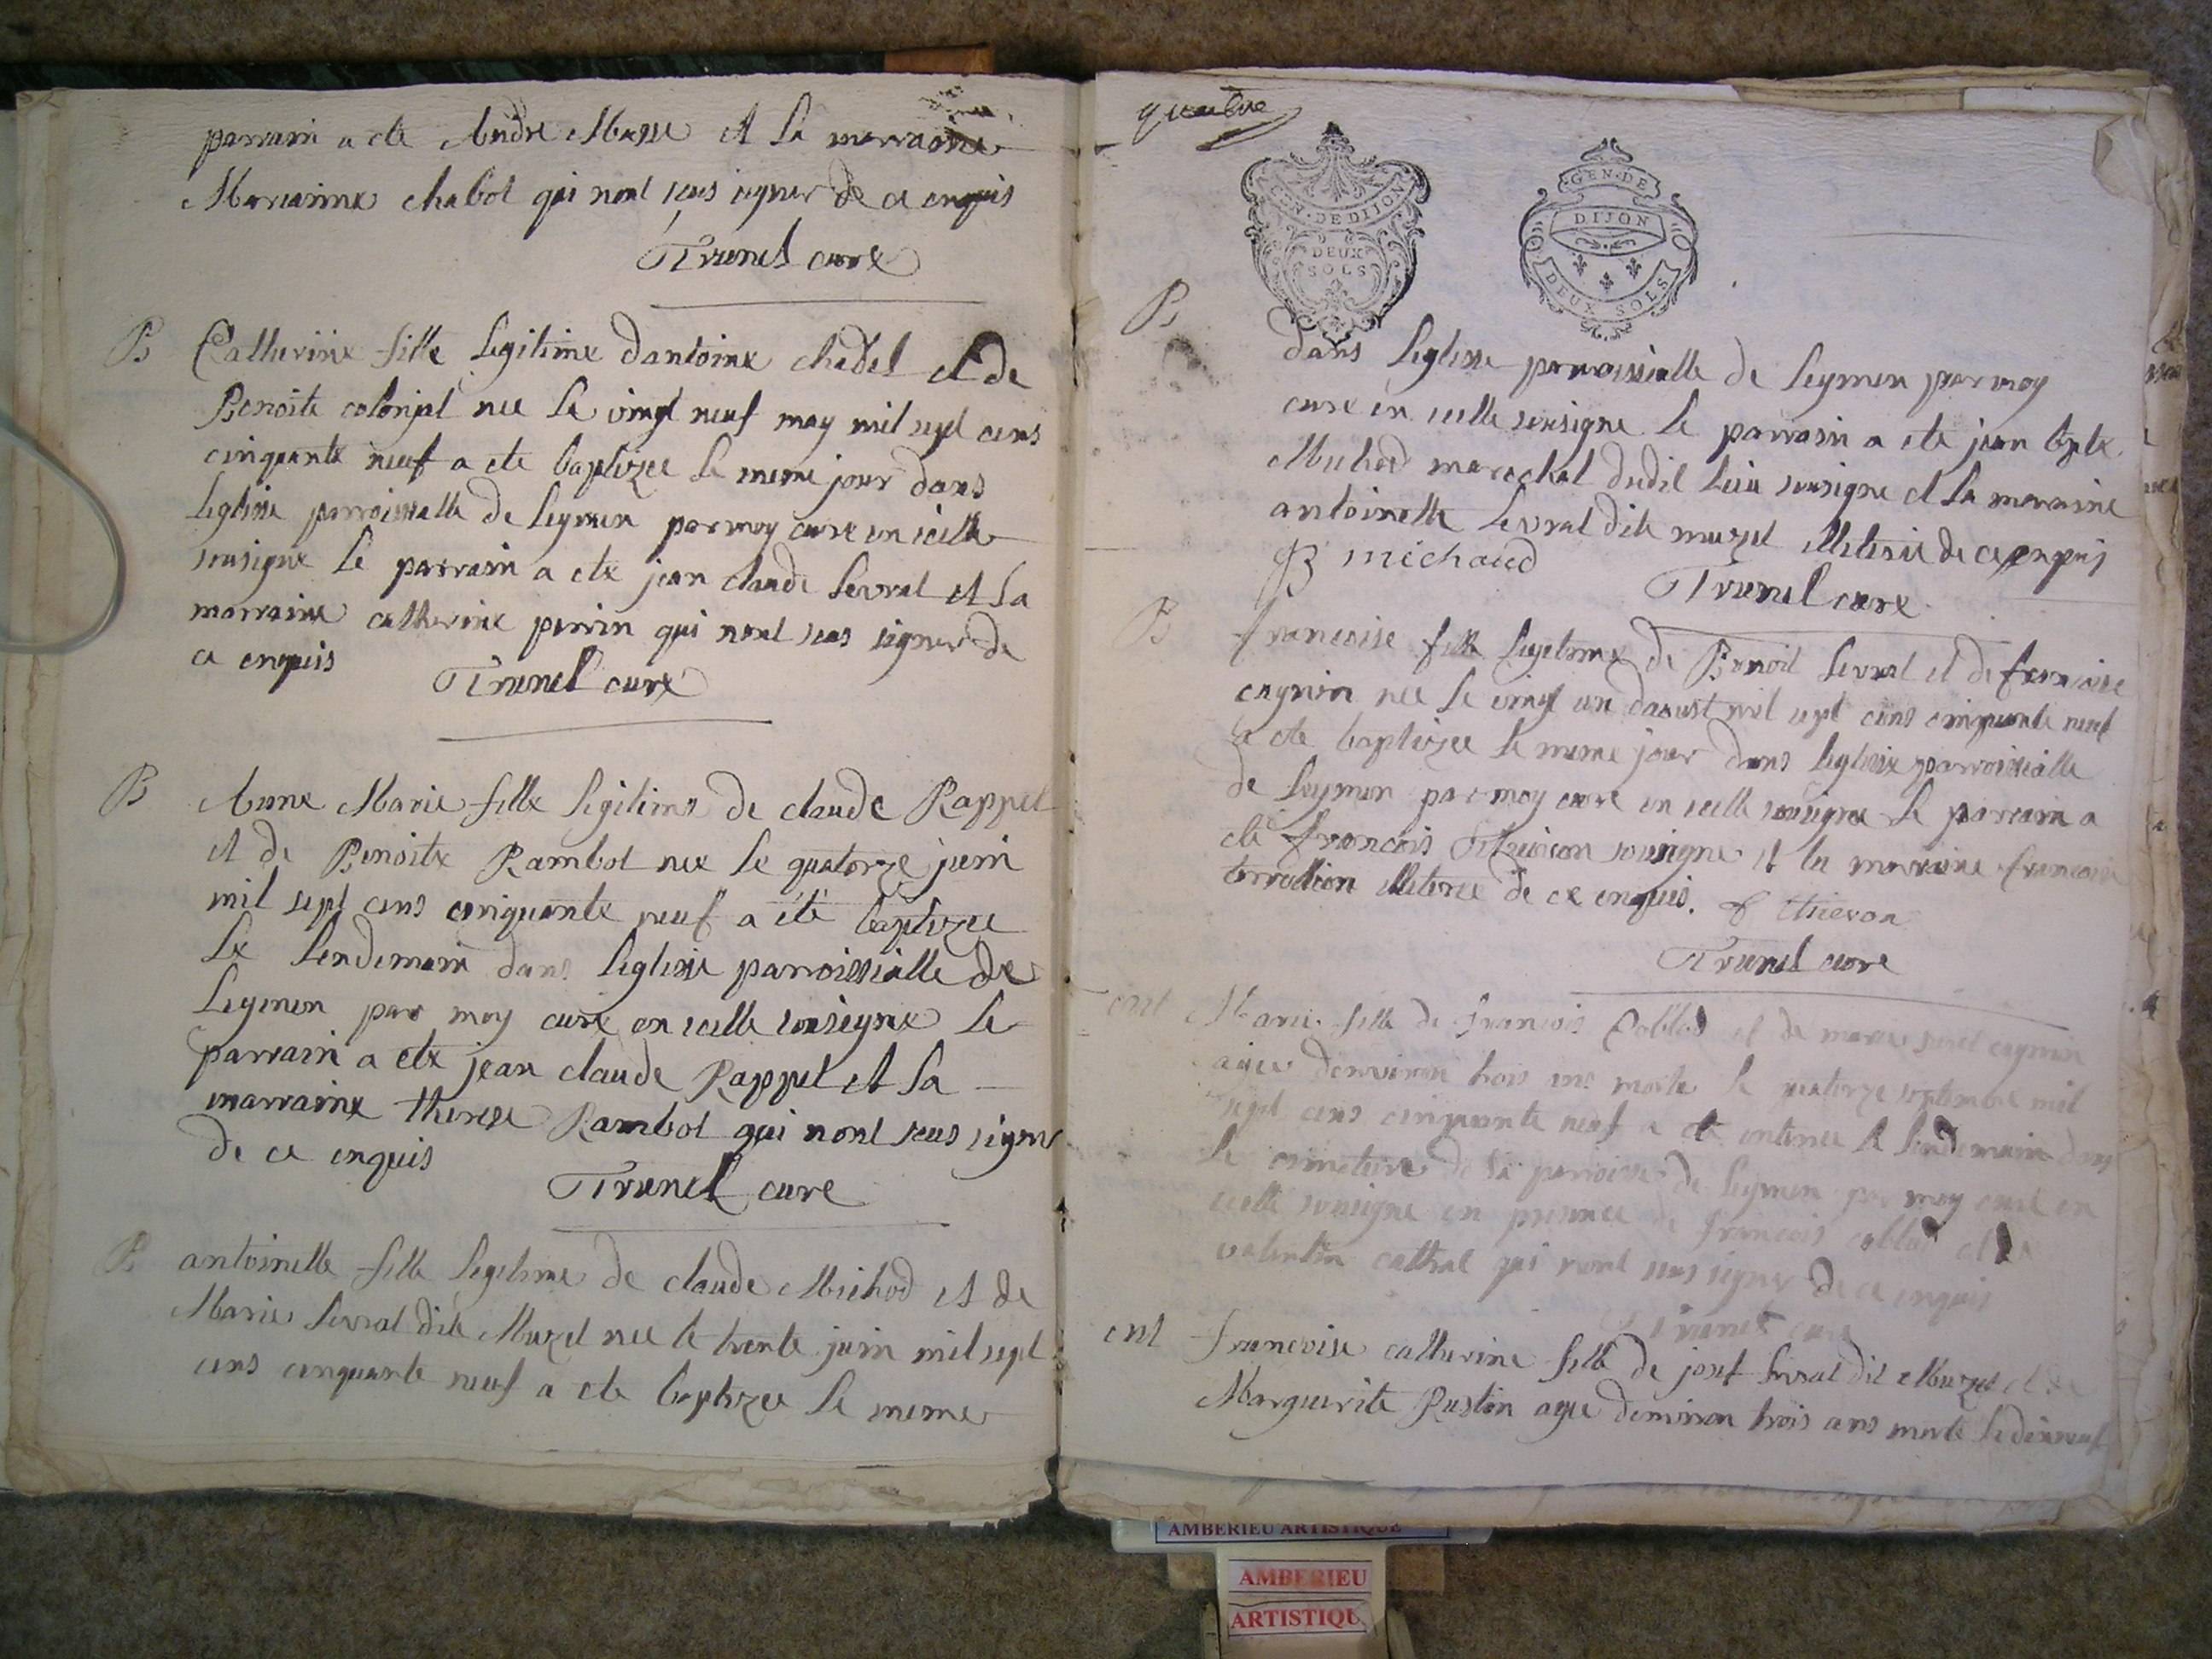 parrain a ete Andre Masse et la marraine
Marianne chabot qui nont scus signer de ce enquis
Trunel cure
B
Catherine fille legitime dantoine chedel et de
Benoite colonjat nee le vingt neuf may mil sept cens
cinquante neuf a ete baptizee le meme jour dans
leglisse parroissialle de leymen par moy cure en icelle
sousigne le parrain a ete jean claude levrat et la
marraine catherine perrin qui nont scus signer de
ce enquis Trunel cure
B
Anne Marie fille legitime de claude Rappet
et de Benoite Rambot nee le quatorze juin
mil sept cens cinquante neuf a été baptizee
le lendemain dans leglisse parroissialle de
leymen par moy cure en icelle sousigne le
parrain a ete jean claude Rappet et la
marraine therese Rambot qui nont scus signer
de ce enquis
Trunel cure
B
antoinette fille legitime de claude Michod et de
Marie levrat dite Muzel nee le trente juin mil sept
cens cinquante neuf a ete baptizee le meme
quatre
GEN·DE DIJON
DEUX
SOLS
GEN·DE
DIJON
DEUX SOLS
B
dans leglisse parroissialle de leymen par moy
cure en icelle sousigne le parrain a ete jean bpte
Michod marechal dudit lieu sousigne et la marraine
antoinette levrat dite muzel illeteree de ce enquis
JB michaud
Trunel cure
B
francoise fille legitime de Benoit levrat et de francoise
cagnin nee le vingt un daoust mil sept cens cinquante neuf
a ete baptizee le meme jour dans leglisse parroissialle
de leymen par moy cure en icelle sousigne le parrain a
ete francois sousigne et la marraine francoise
illeteree de ce enquis. f thievon
Trunel cure
ent
Marie fille de francois et de marie cagnin
agee denviron trois ans morte le quatorze septembre mil
sept cens cinquante neuf a ete enterree le lendemain dans
le cimetiere de la parroisse de leymen par moy cure en
icelle sousigne en presence de francois et de
valentin qui nont scus signer de ce enquis
Trunel cure
ent
francoise catherine fille de josef levrat dit Muzel et de
Marguerite Rustin agee denviron trois ans morte le dixneuf
AMBERIEU ARTISTIQUE
AMBERIEU
ARTISTIQU